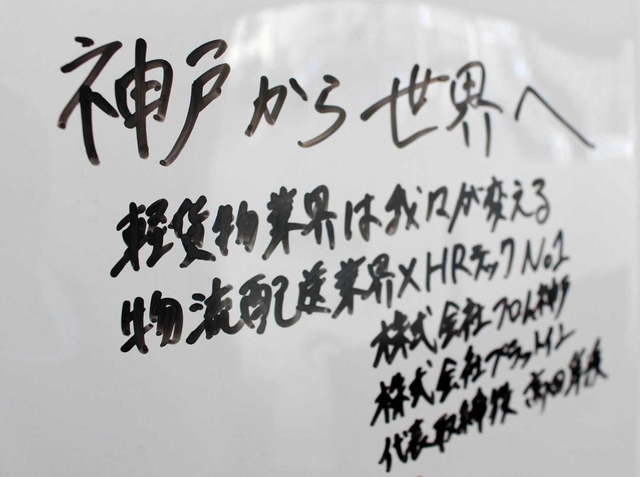 神戸から世界へ
軽貨物業界は我々が変える
物流配送業界×HRテックNo.1
株式会社フロム神戸
株式会社プラットイン
代表取締役 高田